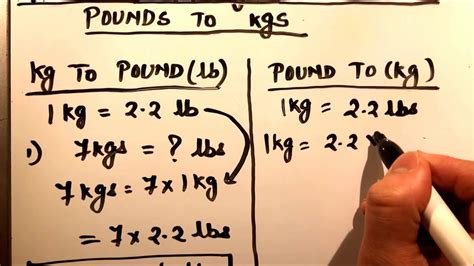 POUNDS TO KGS
Kg TO POUND (lb)
1 kg = 2.2 lb
1) 7kgs = ? lbs
7kgs = 7 x 1kg
= 7 x 2.2 lbs
POUND TO (kg)
1kg = 2.2 lbs
1kg = 2.2